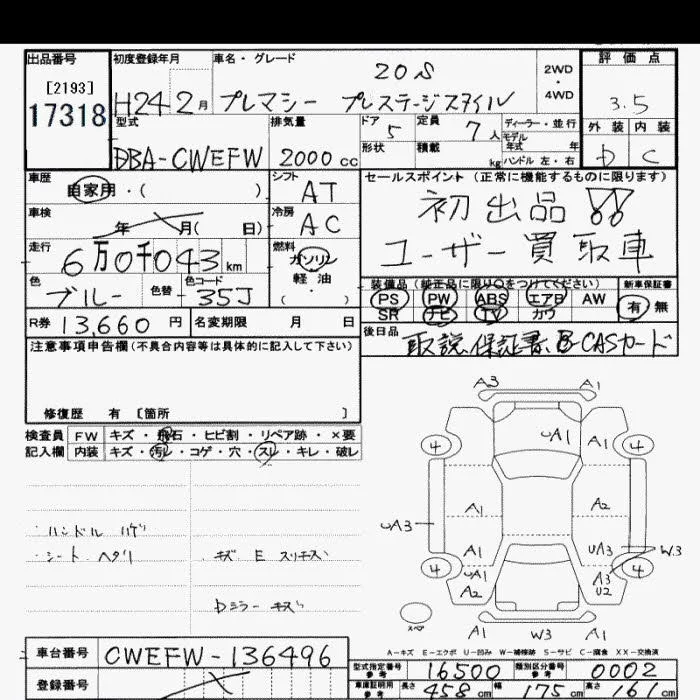 出品番号 初度登録年月 車名・グレード 評価点
[2193] 20S 2WD・4WD
17318 H24 2月 プレマシー プレステージスタイル 3.5
型式 排気量 ドア 5 定員 7人 ディーラー・並行 外装 内装
モデル年式 年
DBA-CWEFW 2000cc 形状 積載 kg ハンドル 左・右 D C
車歴 シフト セールスポイント(正常に機能するものに限ります)
自家用・( ) AT 初出品!!
車検 冷房
年 月( 日) AC ユーザー買取車
走行 燃料
6万0千043km ガソリン
軽油
( ・ )
色 色替 色コード 装備品(純正品に限り○をつけてください) 新車保証書
ブルー 35J PS PW ABS エアB AW 有 無
SR ナビ TV カワ
R券 13,660円 名変期限 月 日 後日品
取説、保証書、B-CASカード
注意事項申告欄(不具合内容等は具体的に記入して下さい)
修復歴 有 [箇所 ]
検査員 FW キズ・飛石・ヒビ割・リペア跡・×要
記入欄 内装 キズ・汚レ・コゲ・穴・スレ・キレ・破レ
A3 A1
UA1 A1
4 4
A1 A2
UA3
A1 UA1 W3
UA1 A3
4 4
A2 U2
スペア
A1 W3 A1
ハンドル ハゲ
シート ヘタリ キズ E スリキズ
Dミラー キズ
A-キズ E-エクボ U-凹み W-補修跡 S-サビ C-腐食 XX-交換済
車台番号 CWEFW-136496 型式指定番号 参考 16500 類別区分番号 参考 0002
登録番号 車庫証明用 参考 長さ 458cm 幅 175cm 高さ 161cm